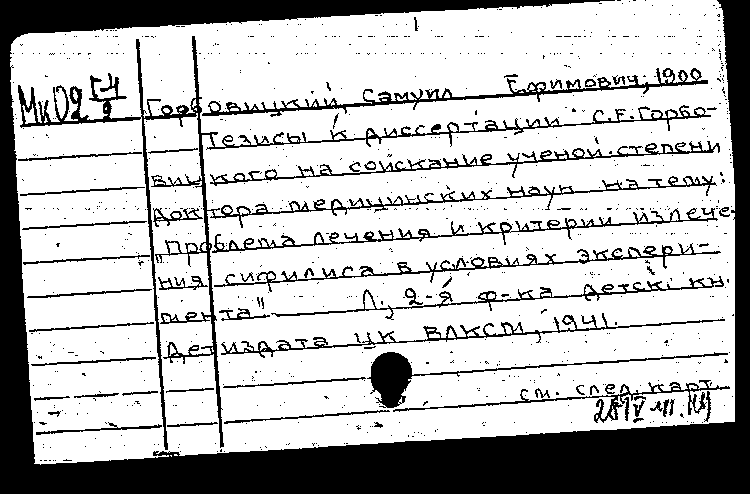 МкО2 Г-4/9
Горбовицкий, Самуил Ефимович, 1900
Тезисы к диссертации С.Е. Горбо-
вицкого на соискание ученой степени
доктора медицинских наук на тему:
„Проблема лечения и критерий излече-
ния сифилиса в условиях экспери-
мента". Л., 2-я ф-ка детск. кн.
Детиздата ЦК ВЛКСМ, 1941.
см. след. карт.